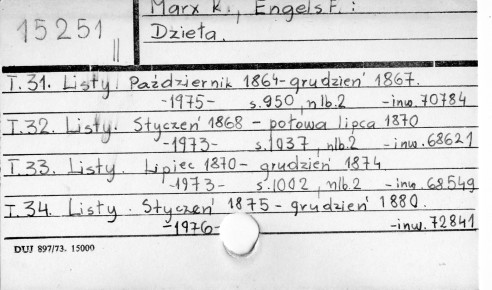 15251
||
Marx K., Engels F.:
Dzieła.
T.31. Listy. Październik 1864-grudzień 1867.
-1975- s.950, nlb.2 -inw.70784
T.32. Listy. Styczeń 1868 - połowa lipca 1870
-1973- s.1037, nlb.2 -inw.68621
T.33. Listy. Lipiec 1870 - grudzień 1874
-1973- s.1002, nlb.2 -inw.68549
T.34. Listy. Styczeń 1875 - grudzień 1880.
-1976- -inw.72841
DUJ 897/73. 15000